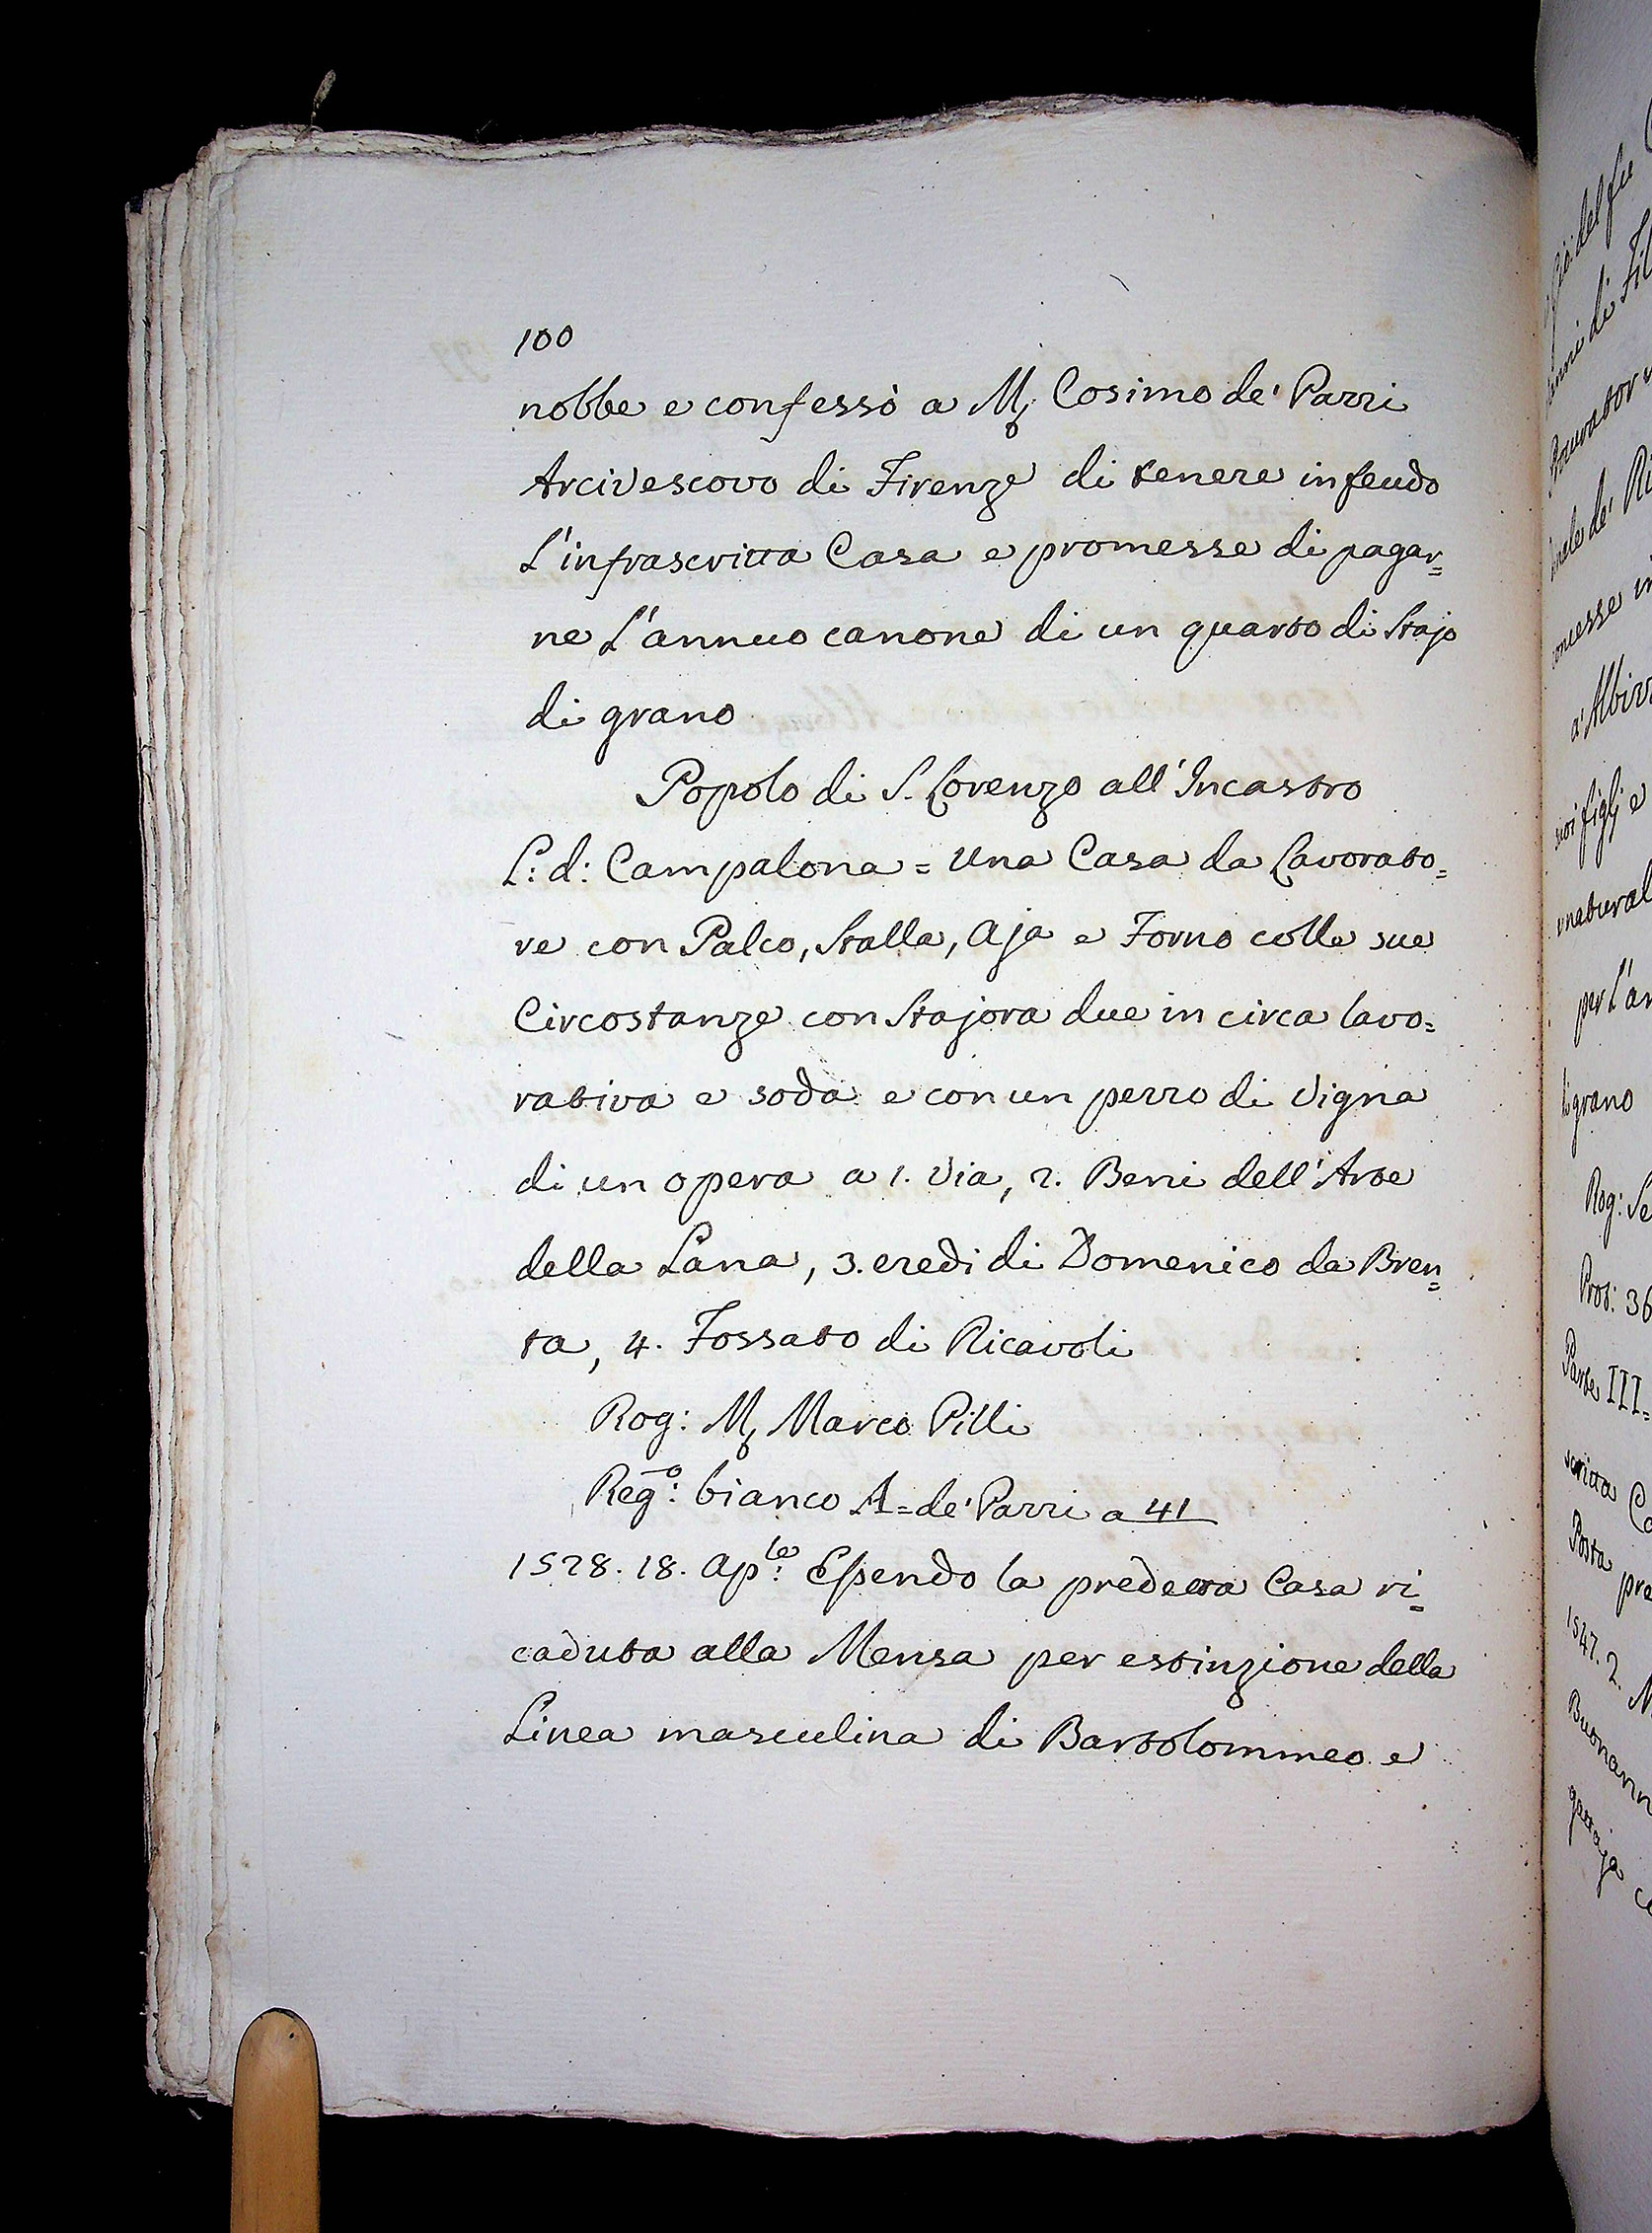 100
nobbe e confessò a M; Cosimo de' Pazzi
Arcivescovo di Firenze di tenere in feudo
L'infrascritta Casa e promesse di pagar=
ne L'annuo canone di un quarto di Stajo
di grano
Popolo di S. Lorenzo all'Incastro
L: d: Campalona = una Casa da Lavorato=
re con Palco, Stalla, Aja e Forno colle sue
Circostanze con Stajora due in circa lavo=
rativa e soda e con un pezzo di Vigna
di un opera a 1. Via, 2. Beni dell'Arte
della Lana, 3. eredi di Domenico da Bren=
ta, 4. Fossato di Ricavoli
Rog: M; Marco Pilli
Reg:o bianco A = de' Pazzi a 41
1528. 18. Ap:le Essendo la predetta Casa ri=
caduta alla Mensa per estinzione della
Linea masculina di Bartolommeo e
del fu
di Fil
Procurator
de' Ri
a' Albizz
figlj e
natural
per l'an
grano
Rog: Se
Prot: 36
Parte III=
scritta Ca
Posta pre
1547. 2. M
Buonann